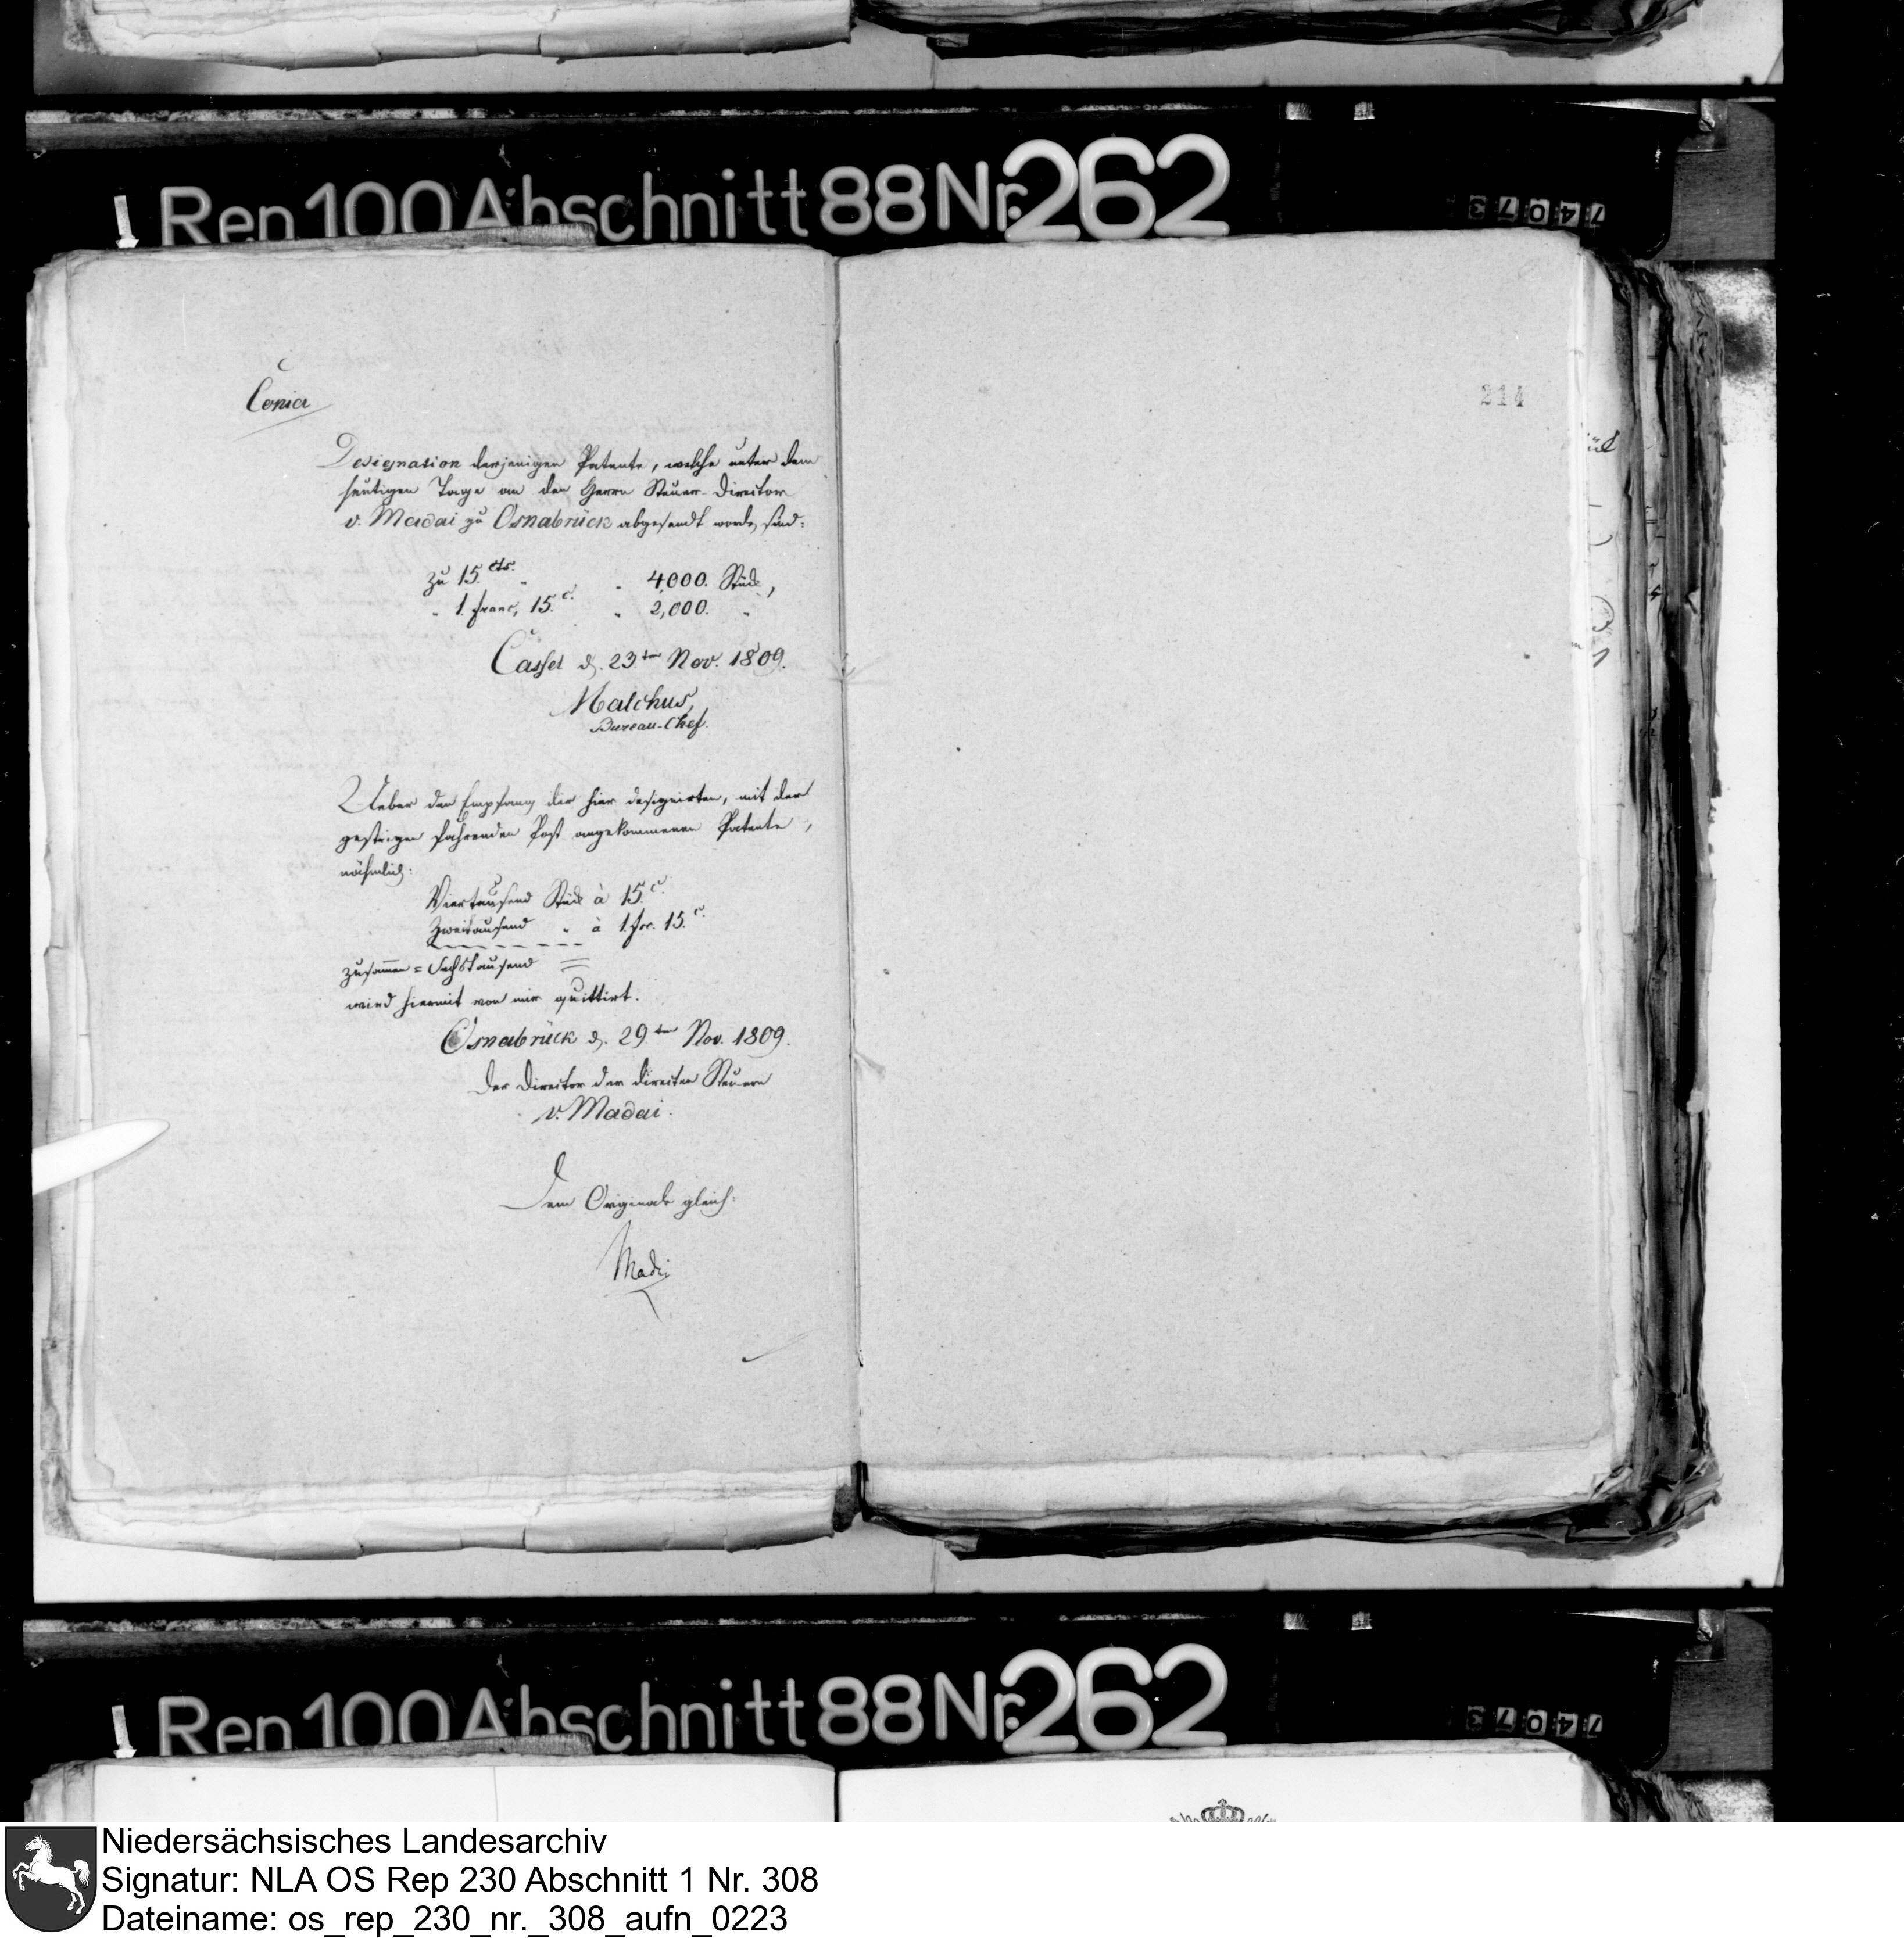 Rep 100 Abschnitt 88 Nr. 262
74073
Copia
Designation derjenigen Patente, welche unter dem
heutigen Tage an den Herrn Steuer-Director
v. Madai zu Osnabrück abgesandt worden sind:
zu 15. cts. " " 4000. Stück,
" 1. franc, 15. c. " 2,000. "
Cassel d. 23ten Nov. 1809.
Malchus,
Bureau-Chef.
Ueber den Empfang der hier designirten, mit der
gestrigen fahrenden Post angekommenen Patente,
nähmlich:
Viertausend Stück à 15. c.
Zweitausend " à 1 frc. 15. c.
zusammen = Sechstausend =
wird hiermit von mir quittirt.
Osnabrück d. 29ten Nov. 1809.
Der Director der directen Steuern
v. Madai.
Dem Originale gleich:
Madai
214
Rep 100 Abschnitt 88 Nr. 262
74073
Niedersächsisches Landesarchiv
Signatur: NLA OS Rep 230 Abschnitt 1 Nr. 308
Dateiname: os_rep_230_nr._308_aufn_0223